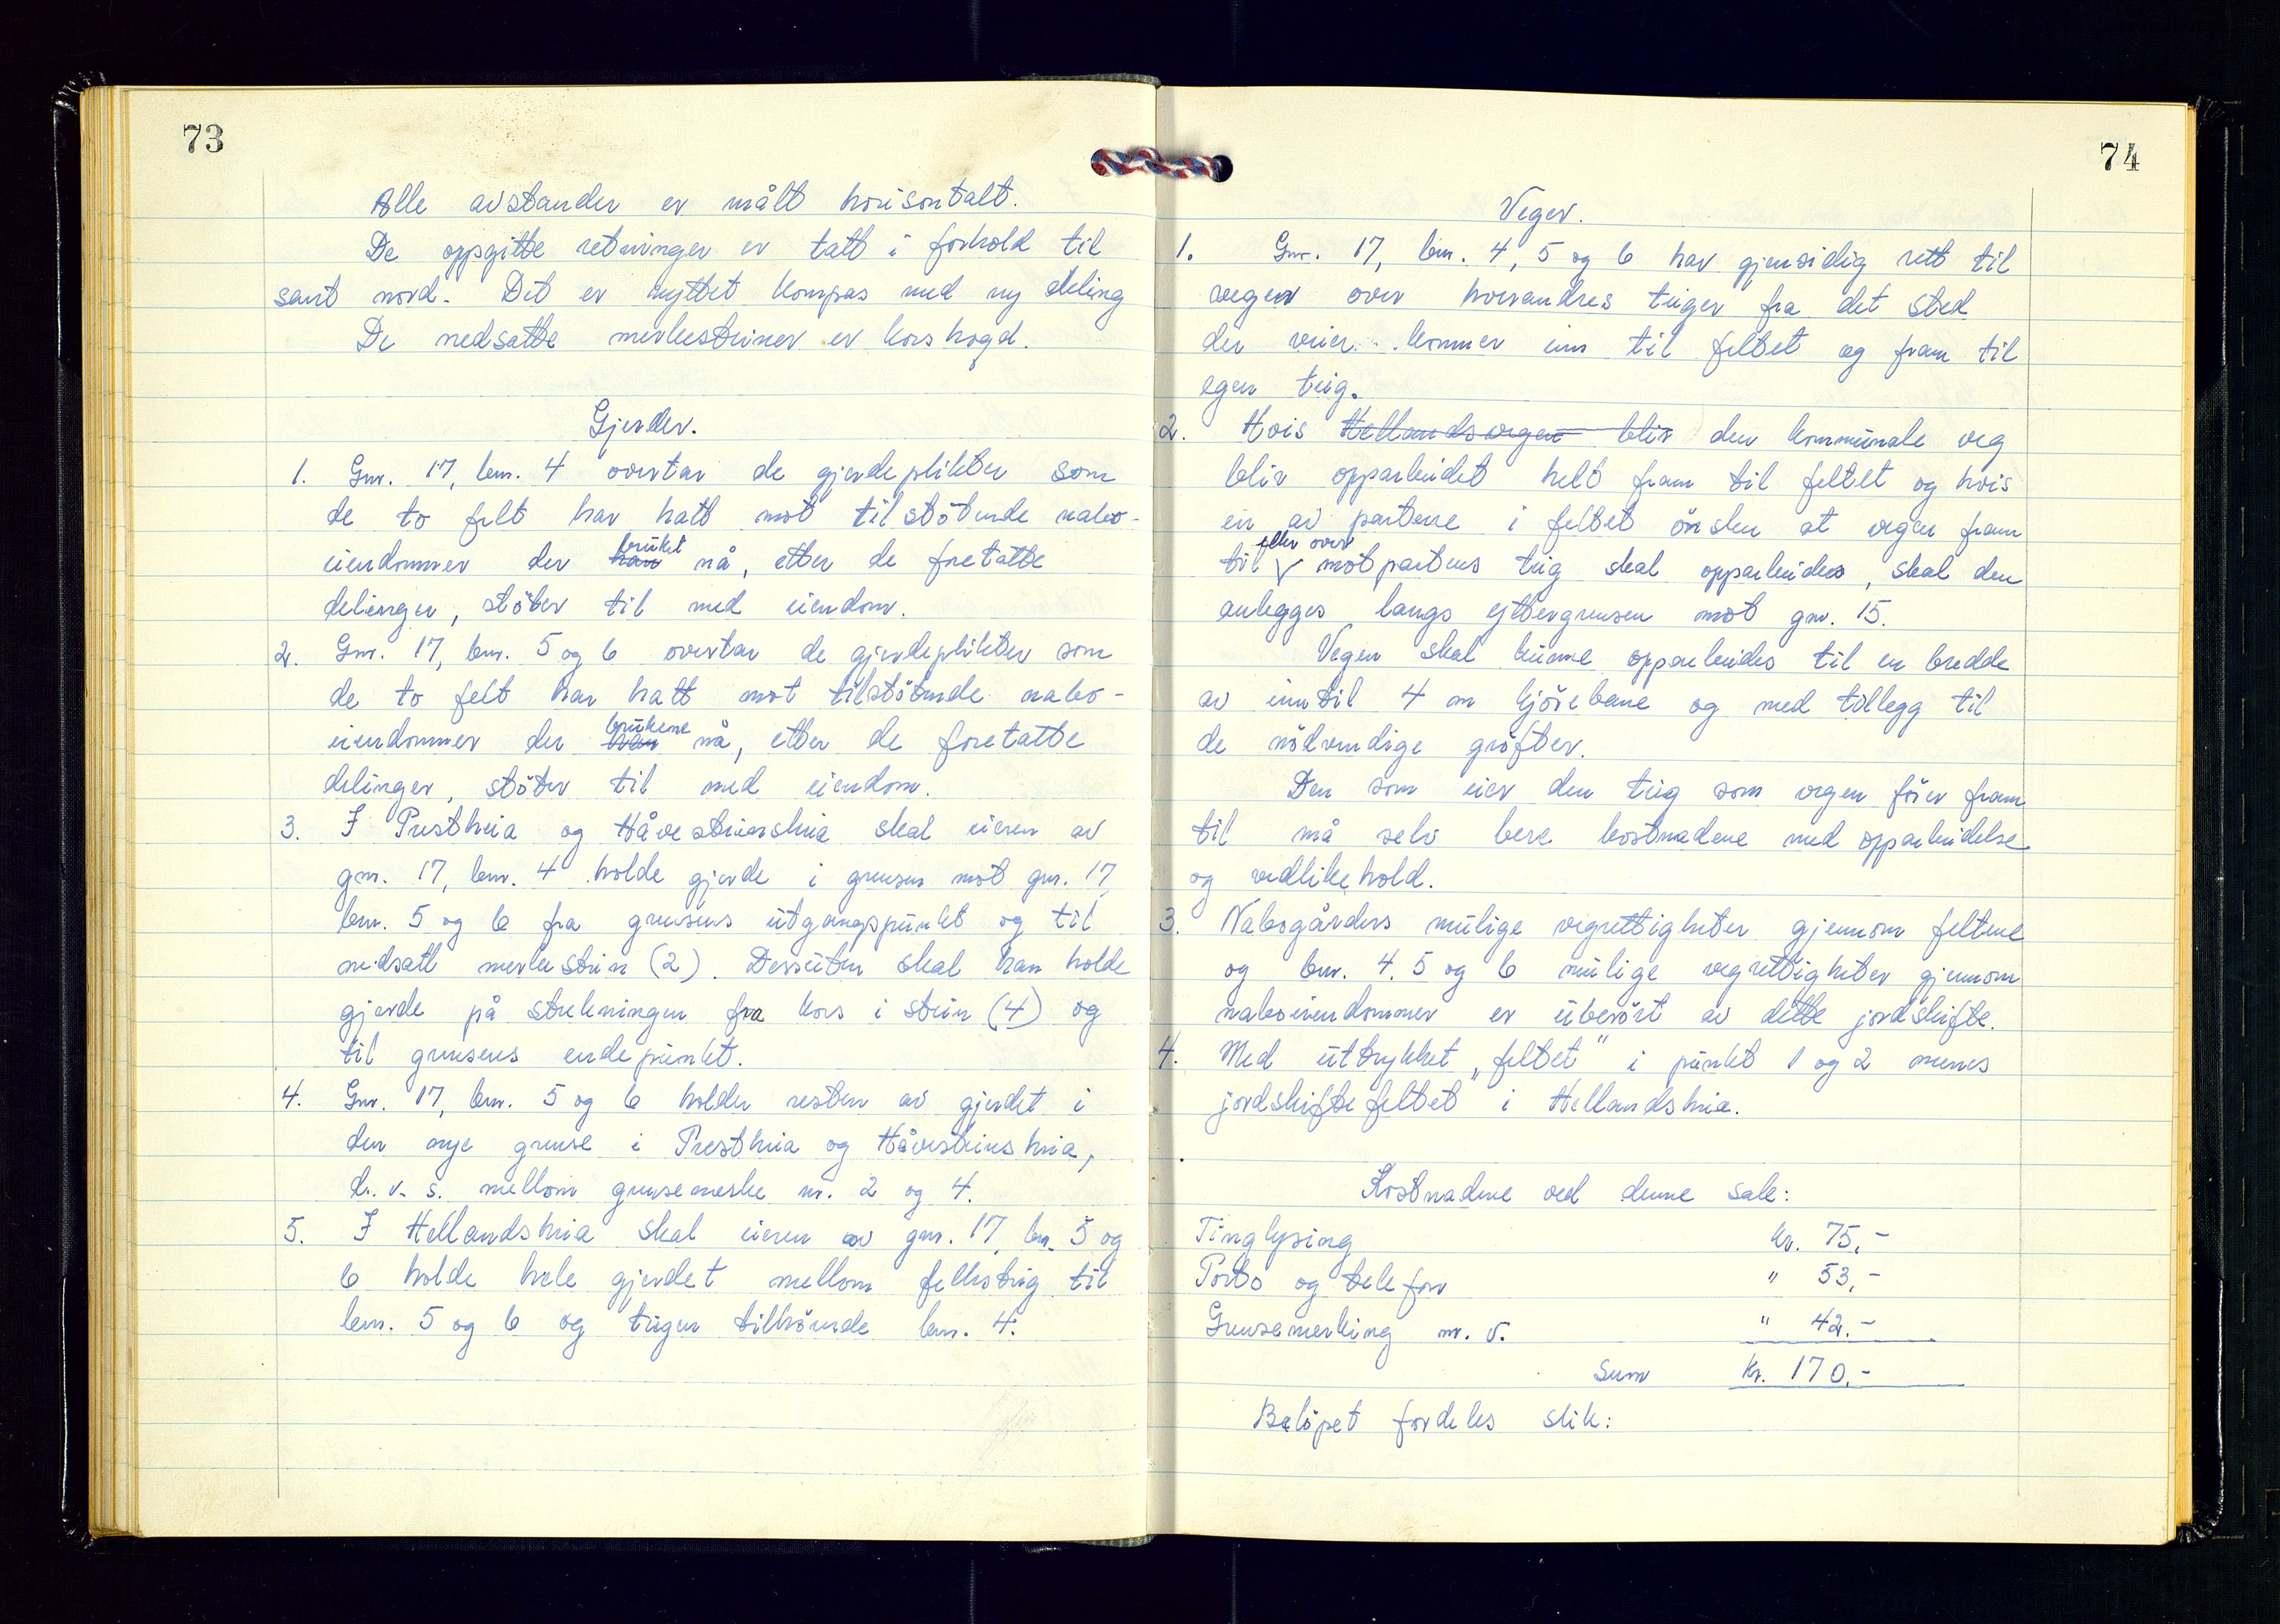 73
Alle avstander er målt horisontalt.
De oppgitte retninger er tatt i forhold til
sant nord. Det er nyttet kompas med ny deling
De nedsatte merkesteiner er korshogd.
Gjerder.
1. Gnr. 17, bnr. 4 overtar de gjerdeplikter som
de to felt har hatt mot tilstötende nabo-
eiendommer der han bruket nå, etter de foretatte
delinger, stöter til med eiendom.
2. Gnr. 17, bnr. 5 og 6 overtar de gjerdeplikter som
de to felt har hatt mot tilstötende nabo-
eiendommer der han brukene nå, etter de foretatte
delinger, stöter til med eiendom.
3. I Prestheia og Håvesteinsheia skal eieren av
gnr. 17, bnr. 4 holde gjerde i grensen mot gnr. 17,
bnr. 5 og 6 fra grensens utgangspunkt og til
nedsatt merkestein (2). Dessuten skal han holde
gjerde på strekningen fra kors i stein (4) og
til grensens endepunkt.
4. Gnr. 17, bnr. 5 og 6 holder resten av gjerdet i
den nye grense i Prestheia og Håvesteinsheia,
d. v. s. mellom grensemerke nr. 2 og 4.
5. I Hellandsheia skal eieren av gnr. 17, bnr. 5 og
6 holde hele gjerdet mellom fellesteig til
bnr. 5 og 6 og teigen tilhörende bnr. 4.
74
Veger.
1. Gnr. 17, bnr. 4, 5 og 6 har gjensidig rett til
veger over hverandres teiger fra det sted
der veier kommer inn til feltet og fram til
egen teig.
2. Hvis Hellandsvegen blir den kommunale veg
blir opparbeidet helt fram til feltet og hvis
en av partene i feltet önsker at vegen fram
til eller over motpartens teig skal opparbeides, skal den
anlegges langs yttergrensen mot gnr. 15.
Vegen skal kunne opparbeides til en bredde
av inntil 4 m kjörebane og med tillegg til
de nödvendige gröfter.
Den som eier den teig som vegen förer fram
til må selv bere kostnadene med opparbeidelse
og vedlikehold.
3. Nabogårders mulige vegrettigheter gjennom feltene
og bnr. 4. 5 og 6 mulige vegrettigheter gjennom
naboeiendommer er uberört av dette jordskifte.
4. Med uttrykket „feltet" i punkt 1 og 2 menes
jordskiftefeltet i Hellandsheia.
Kostnadene ved denne sak:
Tinglysing kr. 75,-
Porto og telefon " 53,-
Grensemerking m. v. " 42.-
Sum kr. 170.-
Belöpet fordeles slik: